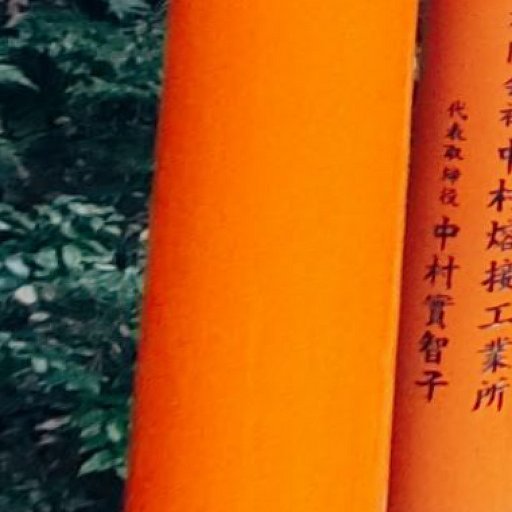 会社中村熔接工業所
代表取締役 中村實智子